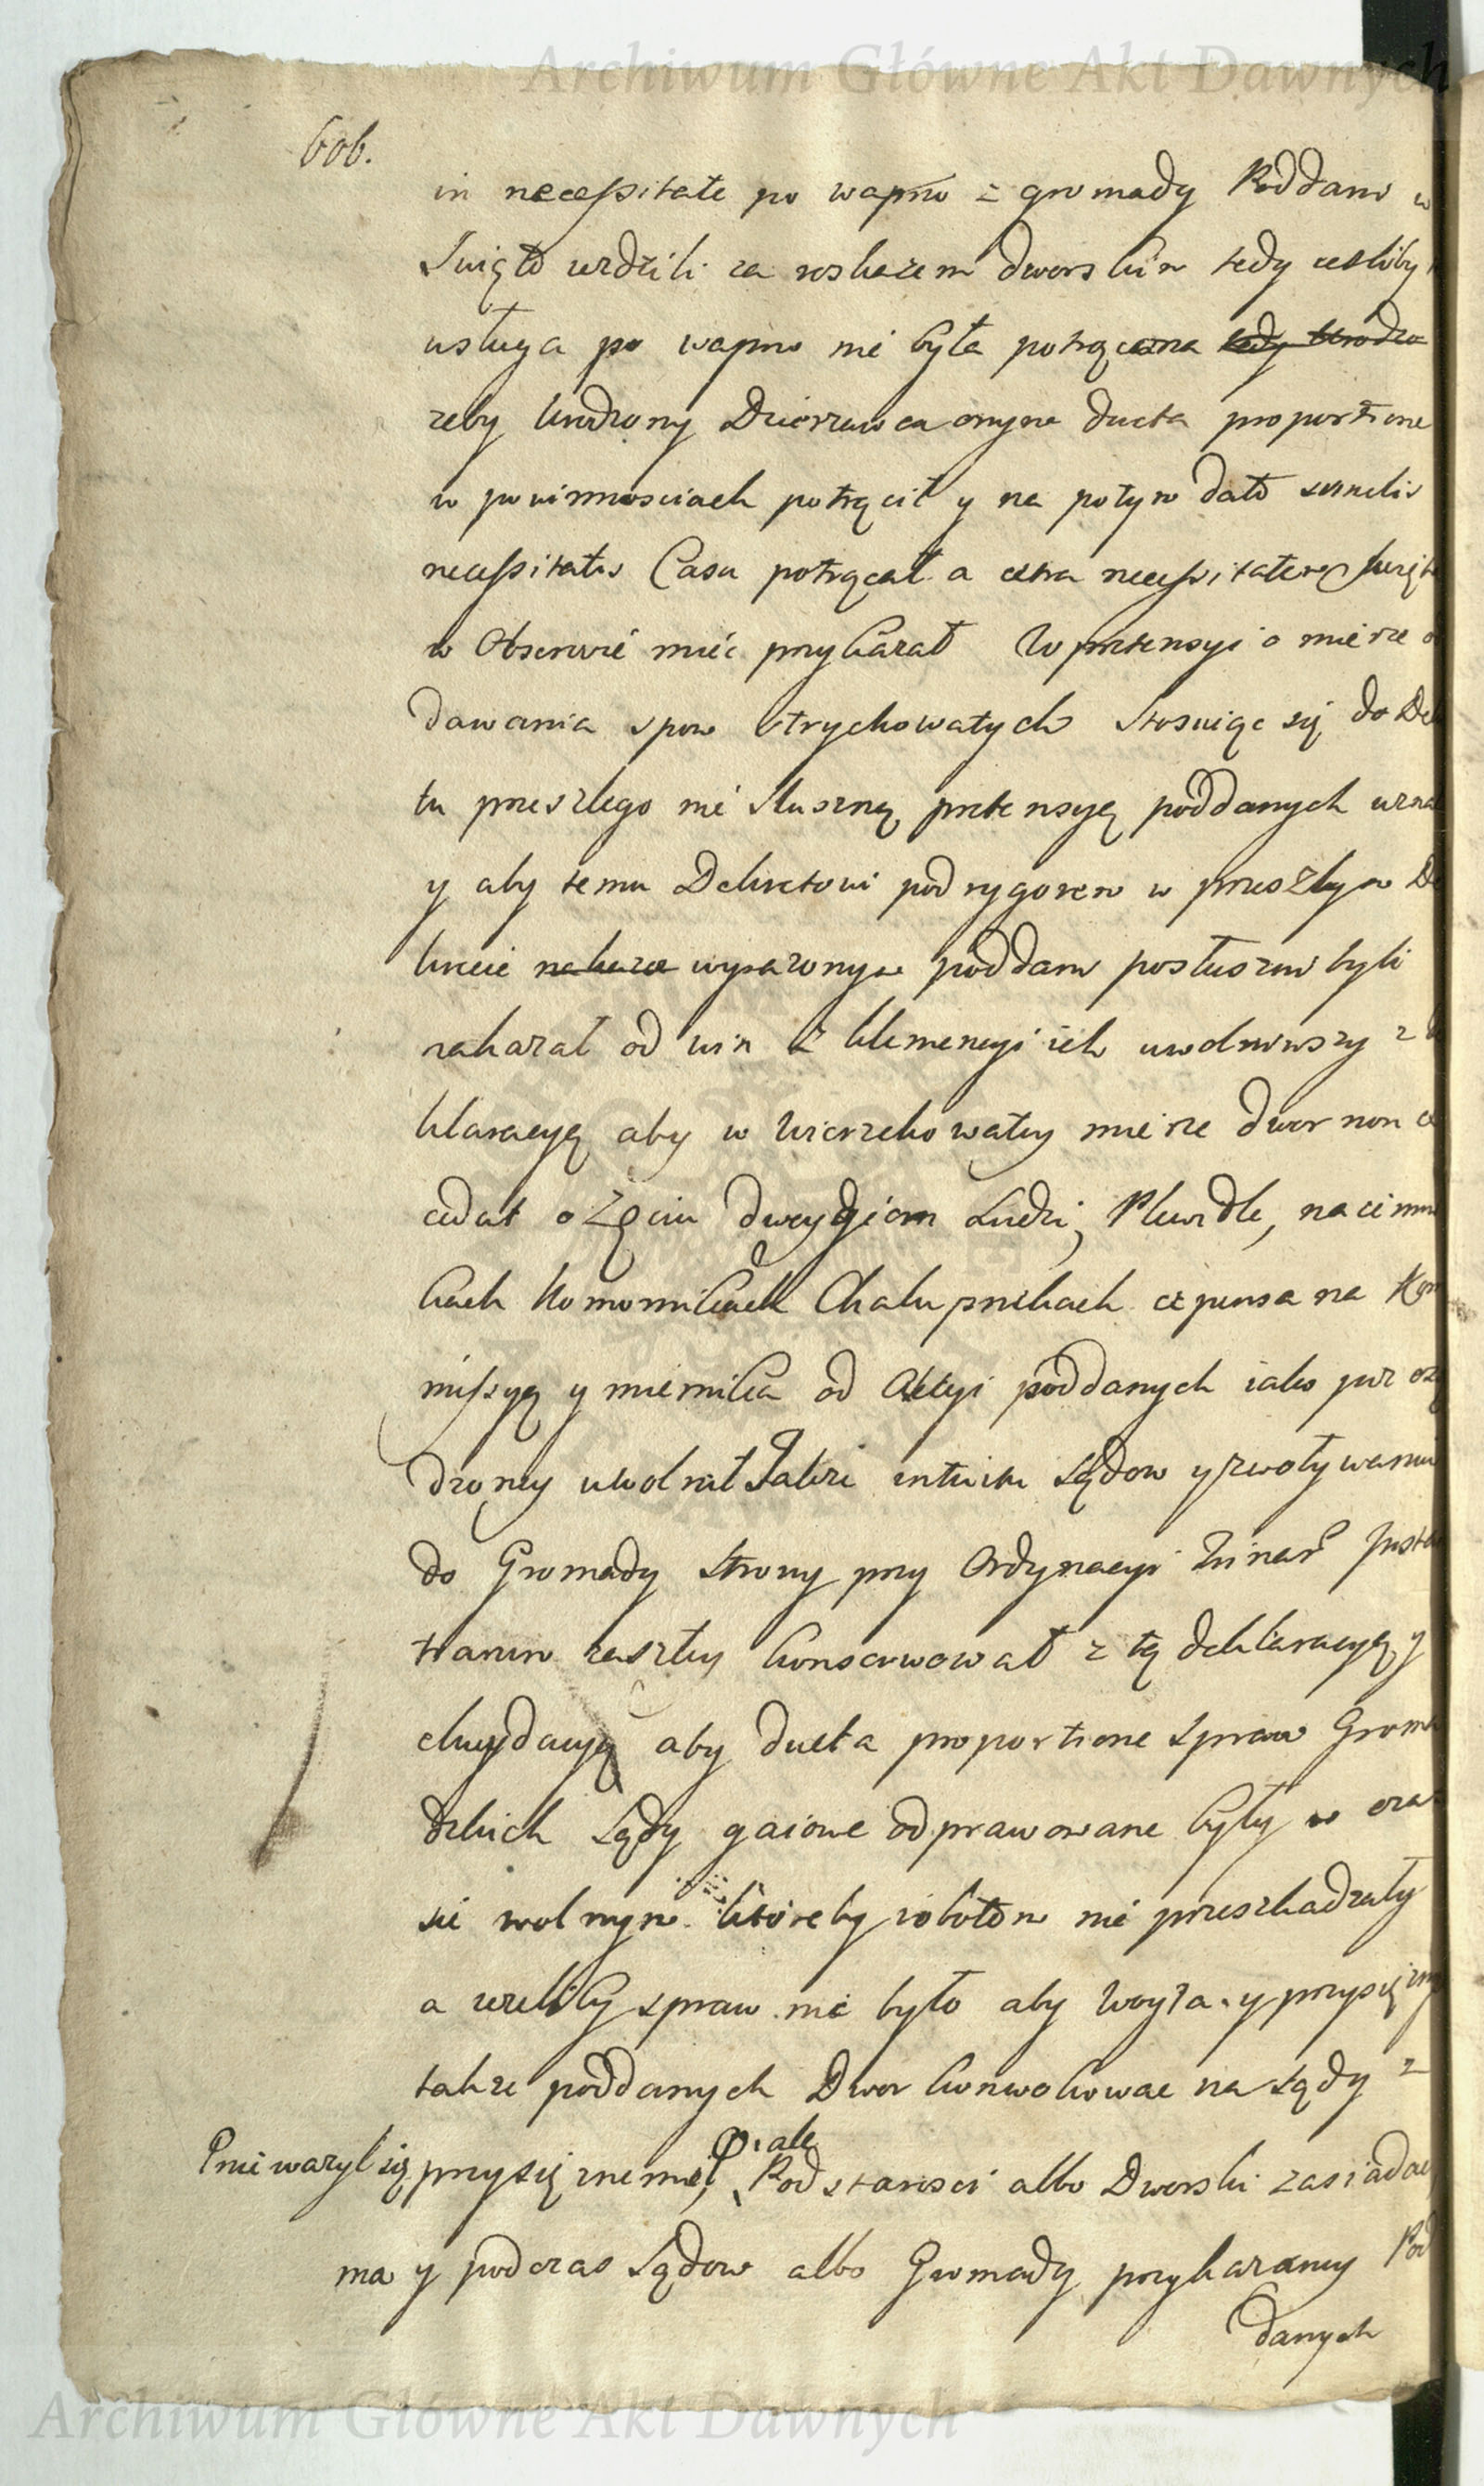 Archiwum Główne Akt Dawnych
606.
in necessitate po wapno z gromady Poddani w
Swięto ieździli za roskazem dworskim tedy ieśliby
usługa po wapno nie była potrącona tedy Urodzo
zeby Urodzony Dzierzawca onym ducta proportione
w powinnosciach potrącił y na potym dato similis
necessitatis Casu potrącał a extra necessitatem Swięta
w Obserwie mieć przykazał W pretensyi o mierze o
dawania spow strychowałych stosuiąc się do De
tu przeszłego nie słuszną pretensyą poddanych uzna
y aby temu Dekretowi pod rygorem w przeszłym De
krecie nakaza wyrazonym poddani posłuszni byli
nakazał od win z klemencyi ich uwolniwszy z
klaracyą aby w wierzchowaty mierze dwor non
cedat o Zęciu dwoygiem Ludzi, Plewidle, na
kach Komornikach Chałupnikach expensa na Kom
missyą y miernika od Akcyi poddanych iako iuz
dzoney uwolnił Także intuitu sądow y zwoływania
do Gromady strony przy Ordynacyi
trarum zaszłey konserwował z tą deklaracyą y
elucydacyą aby ducta proportione spraw Groma
dzkich Sądy gaione odprawowane były w cza
sie wolnym ktoreby robotom nie przeszkadzały
a ieżeliby spraw nie było aby Woyta y przysięzny
takze poddanych Dwor konwokowac na sądy
P nie wazył się przysięznemi, P. ale Podstarosci albo Dworski zasiadac
ma y podczas Sądow albo Gromady przykazaney Pod
danych
Archiwum Główne Akt Dawnych